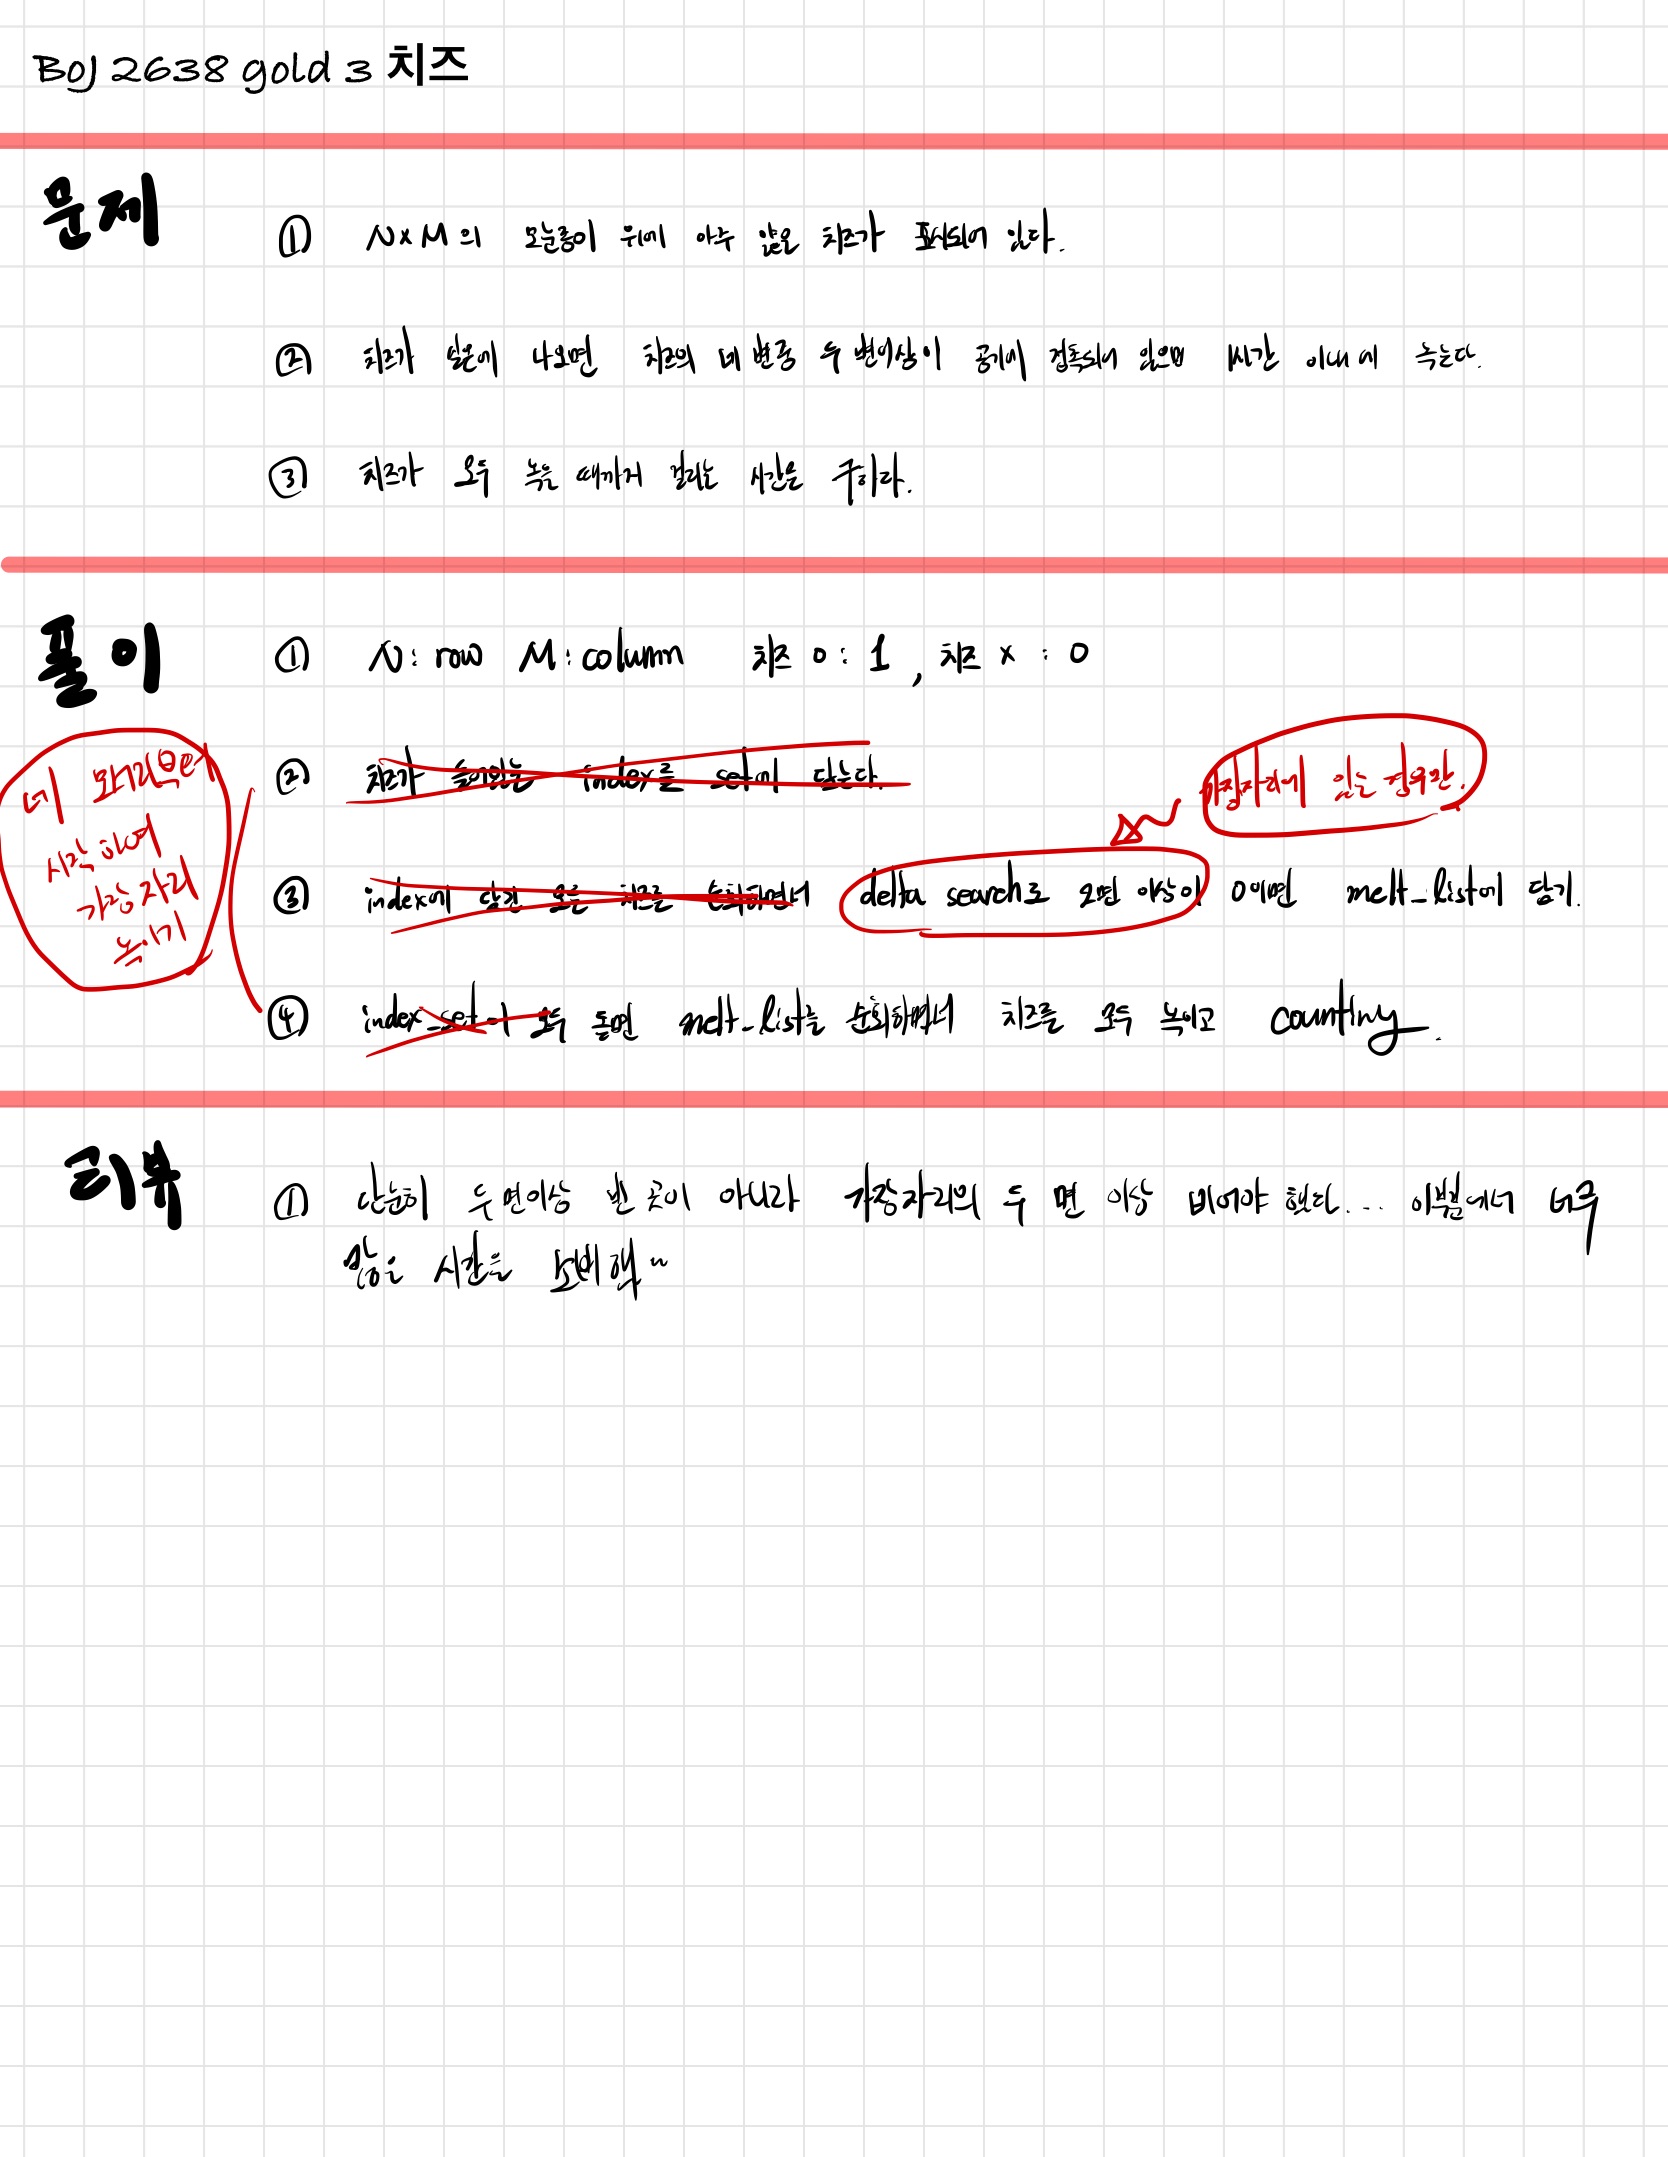 BOJ 2638 gold 3 치즈
문제
① N×M의 모눈종이 위에 아주 얇은 치즈가 표시되어 있다.
② 치즈가 실온에 나오면 치즈의 네 변중 두 변이상이 공기에 접촉되어 있으면 1시간 이내에 녹는다.
③ 치즈가 모두 녹을 때까지 걸리는 시간을 구하라.
풀이
① N: row M: column 치즈 o: 1, 치즈 x : 0
② 치즈가 들어있는 index를 set에 담는다.
가장자리에 있는 경우만.
네 모퉁이부터
시작하여
가장자리
녹이기
③ index에 담긴 모든 치즈를 순회하면서 delta search로 2면 이상이 0이면 melt_list에 담기.
④ index_set이 모두 돌면 melt_list를 순회하면서 치즈를 모두 녹이고 counting.
리뷰
① 단순히 두 면이상 빈 곳이 아니라 가장자리의 두 면 이상 비어야 했다... 이부분에서 너무
많은 시간을 소비함